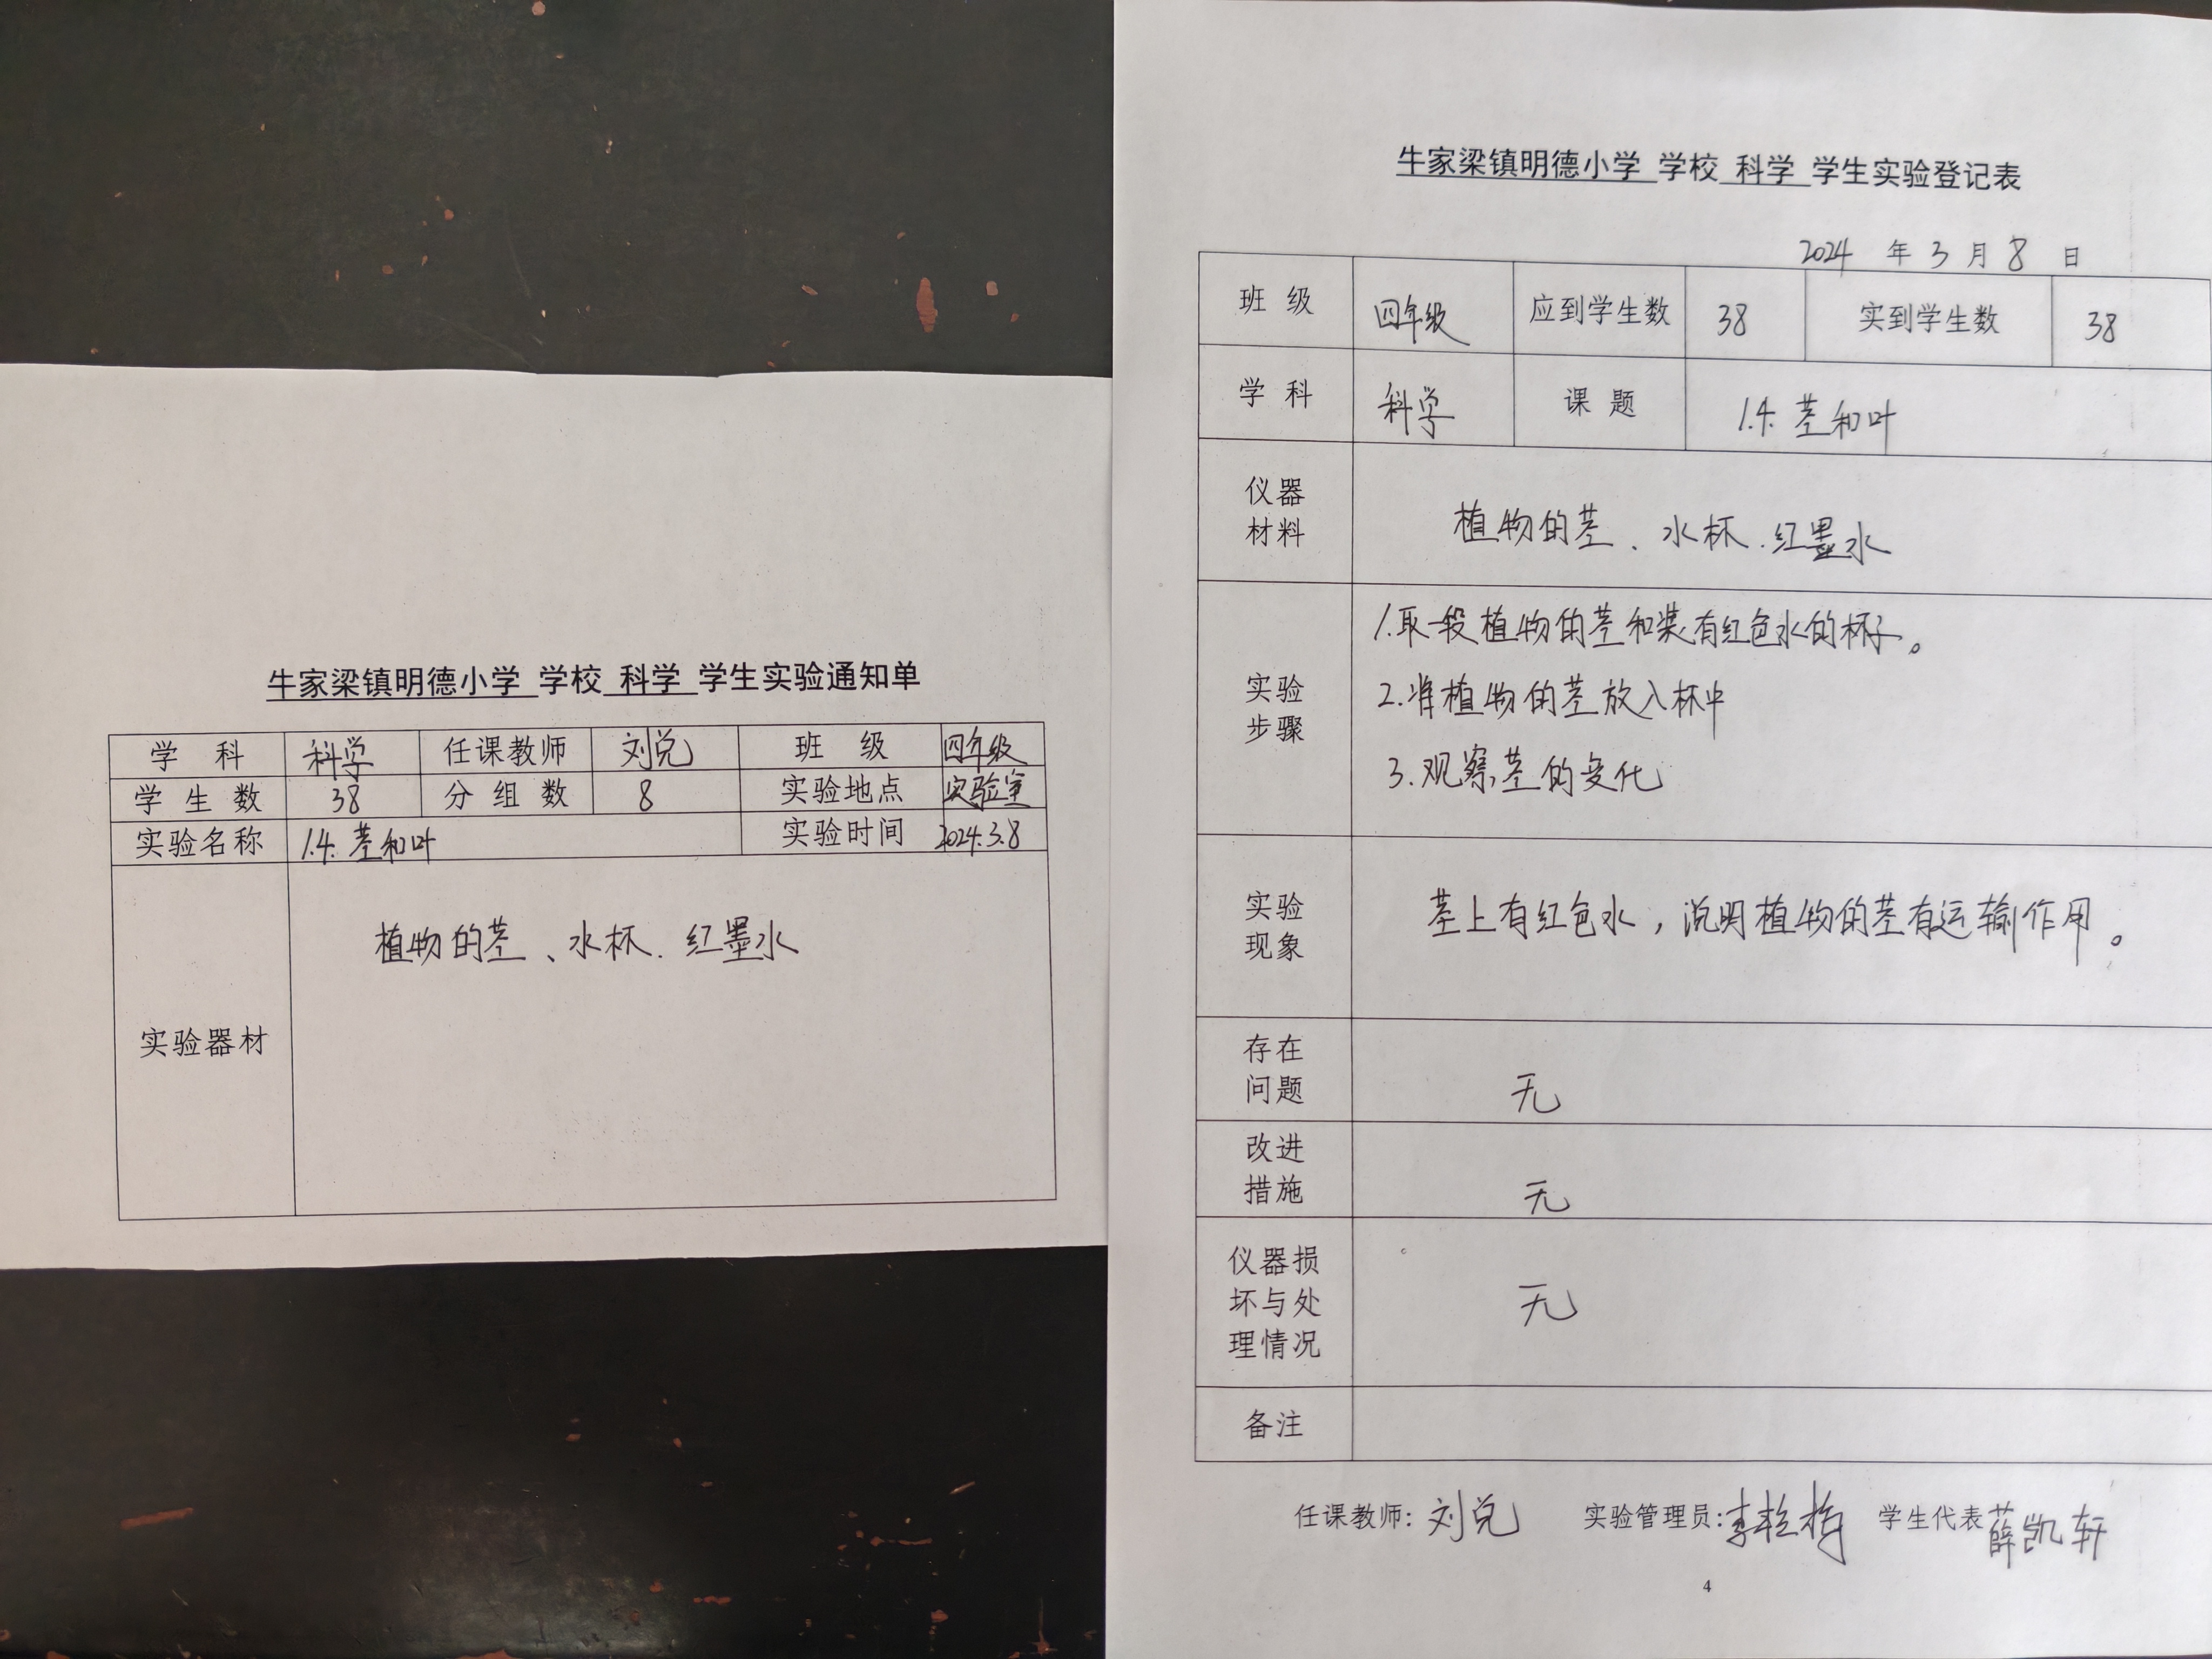 牛家梁镇明德小学 学校 科学 学生实验通知单
学 科 科学 任课教师 刘兑 班 级 四年级
学 生 数 38 分 组 数 8 实验地点 实验室
实验名称 1.4.茎和叶 实验时间 2024.3.8
实验器材 植物的茎、水杯.红墨水
牛家梁镇明德小学 学校 科学 学生实验登记表
2024 年 3 月 8 日
班 级 四年级 应到学生数 38 实到学生数 38
学 科 科学 课 题 1.4.茎和叶
仪器
材料
植物的茎、水杯.红墨水
实验
步骤
1.取一段植物的茎和装有红色水的杯子。
2.将植物的茎放入杯中
3.观察茎的变化
实验
现象
茎上有红色水，说明植物的茎有运输作用。
存在
问题
无
改进
措施
无
仪器损
坏与处
理情况
无
备注
任课教师：刘兑 实验管理员： 学生代表 薛凯轩
4